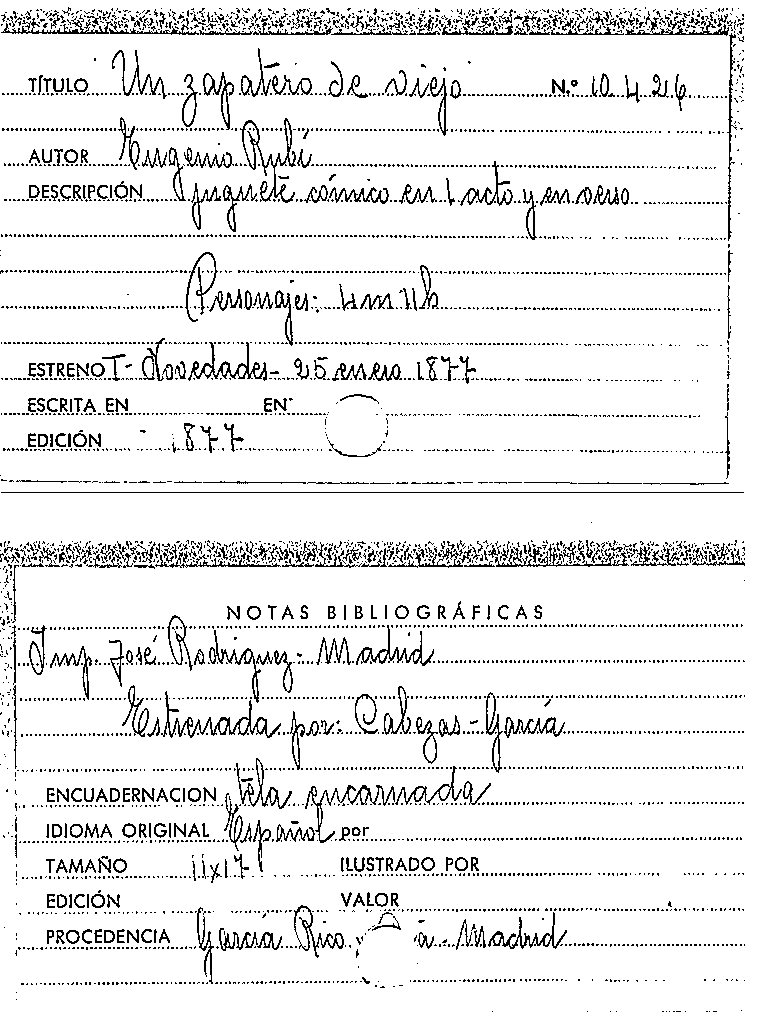 TÍTULO Un zapatero de viejo N.º 10.426
AUTOR Eugenio Rubí
DESCRIPCIÓN juguete cómico en 1 acto y en verso
Personajes: 4m 11h
ESTRENO T- Novedades- 25 enero 1877
ESCRITA EN EN
EDICIÓN - 1877
NOTAS BIBLIOGRÁFICAS
Imp. José Rodriguez- Madrid
Estrenada por: Cabezas-García
ENCUADERNACION tela encarnada
IDIOMA ORIGINAL Español por
TAMAÑO 11x17 ILUSTRADO POR
EDICIÓN VALOR
PROCEDENCIA García Rico y a.- Madrid